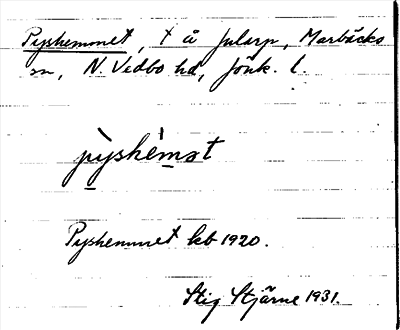 Pyshemmet, t å Jularp, Marbäcks
sn, N. Vedbo hd, Jönk. l.
pỳshèmət
Pyshemmet kb 1920.
Stig Stjärne 1931.